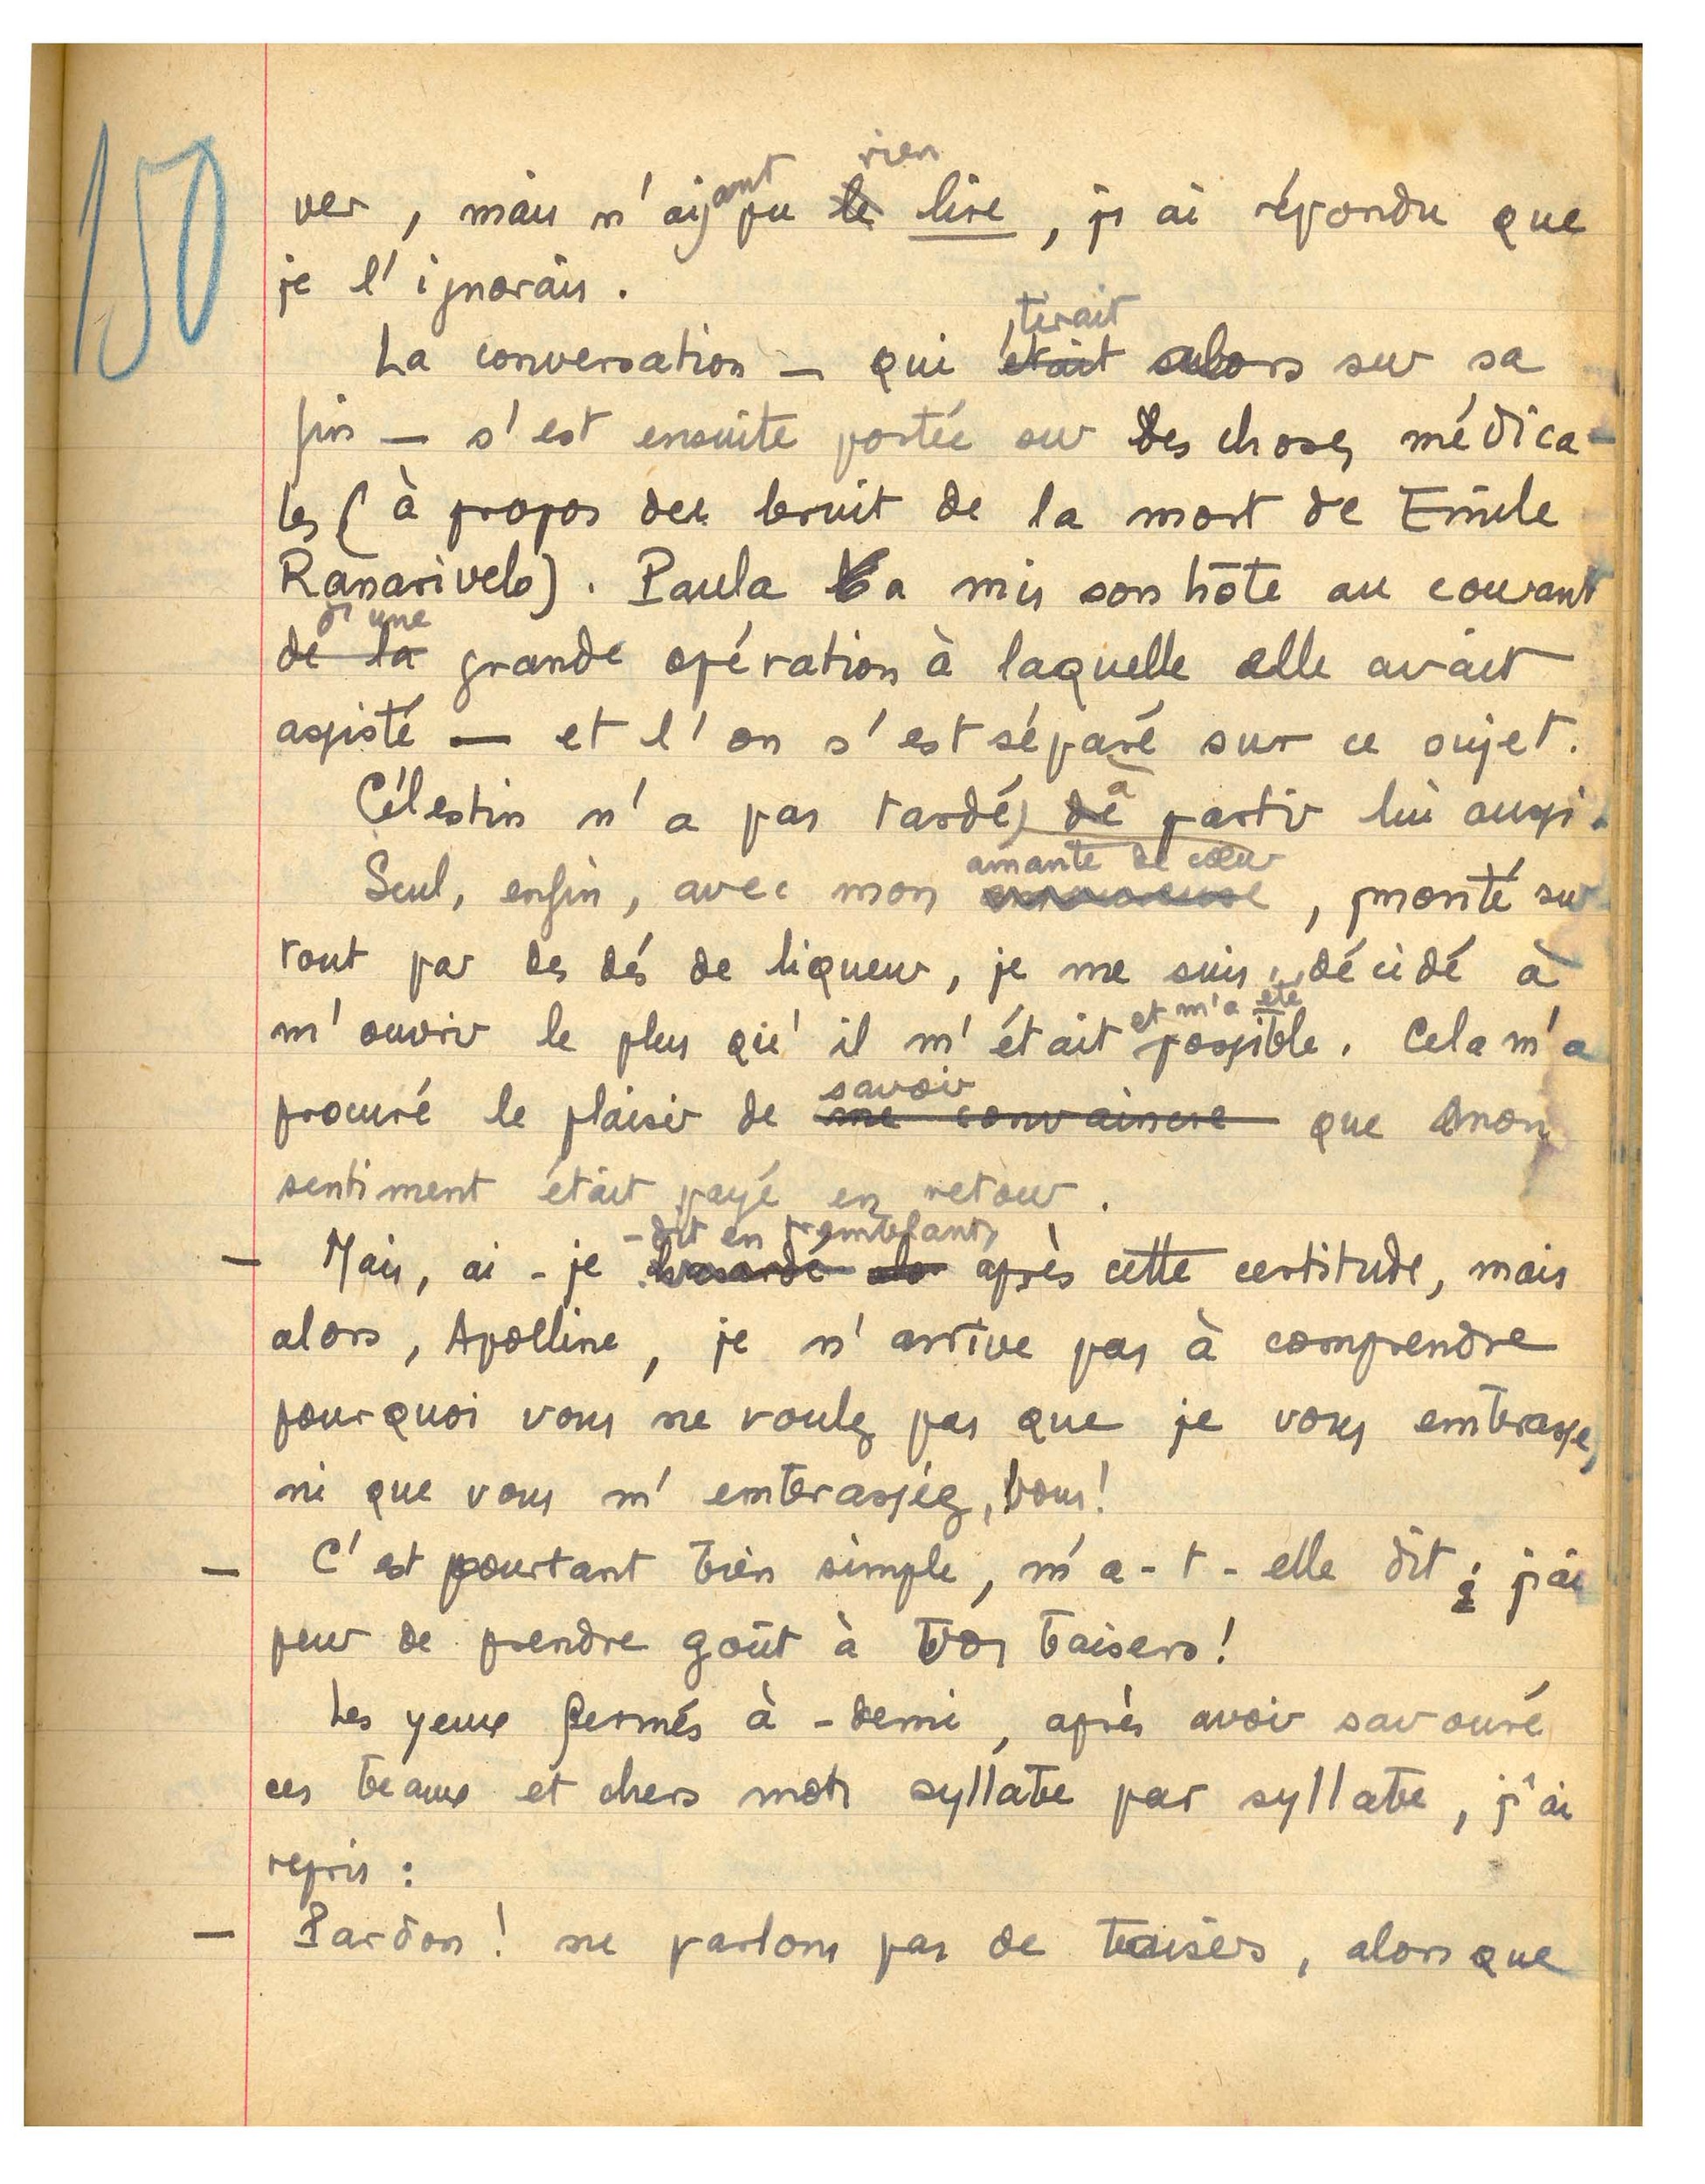 150
rien
ver, mais n'ayant pu le lire, j'ai répondu que
je l'ignorais.
tirait
La conversation — qui était alors sur sa
fin — s'est ensuite portée sur des choses médica-
les (à propos du bruit de la mort de Emile
Ranarivelo). Paula a mis son hôte au courant
d'une
de la grande opération à laquelle elle avait
assisté — et l'on s'est séparé sur ce sujet.
à
Célestin n'a pas tardé de partir lui aussi.
amante de cœur
Seul, enfin, avec mon amoureuse, monté sur
tout par les dés de liqueur, je me suis décidé à
et m'a été
m'ouvrir le plus qu'il m'était possible. Cela m'a
savoir
procuré le plaisir de me convaincre que mon
sentiment était payé en retour.
-dit en tremblant,
— Mais, ai-je hasardé alo après cette certitude, mais
alors, Apolline, je n'arrive pas à comprendre
pourquoi vous ne voulez pas que je vous embrasse,
ni que vous m'embrassiez, vous!
— C'est pourtant bien simple, m'a-t-elle dit : j'ai
peur de prendre goût à vos baisers!
Les yeux fermés à-demi, après avoir savouré
ces beaux et chers mots syllabe par syllabe, j'ai
repris :
— Pardon! ne parlons pas de baisers, alors que